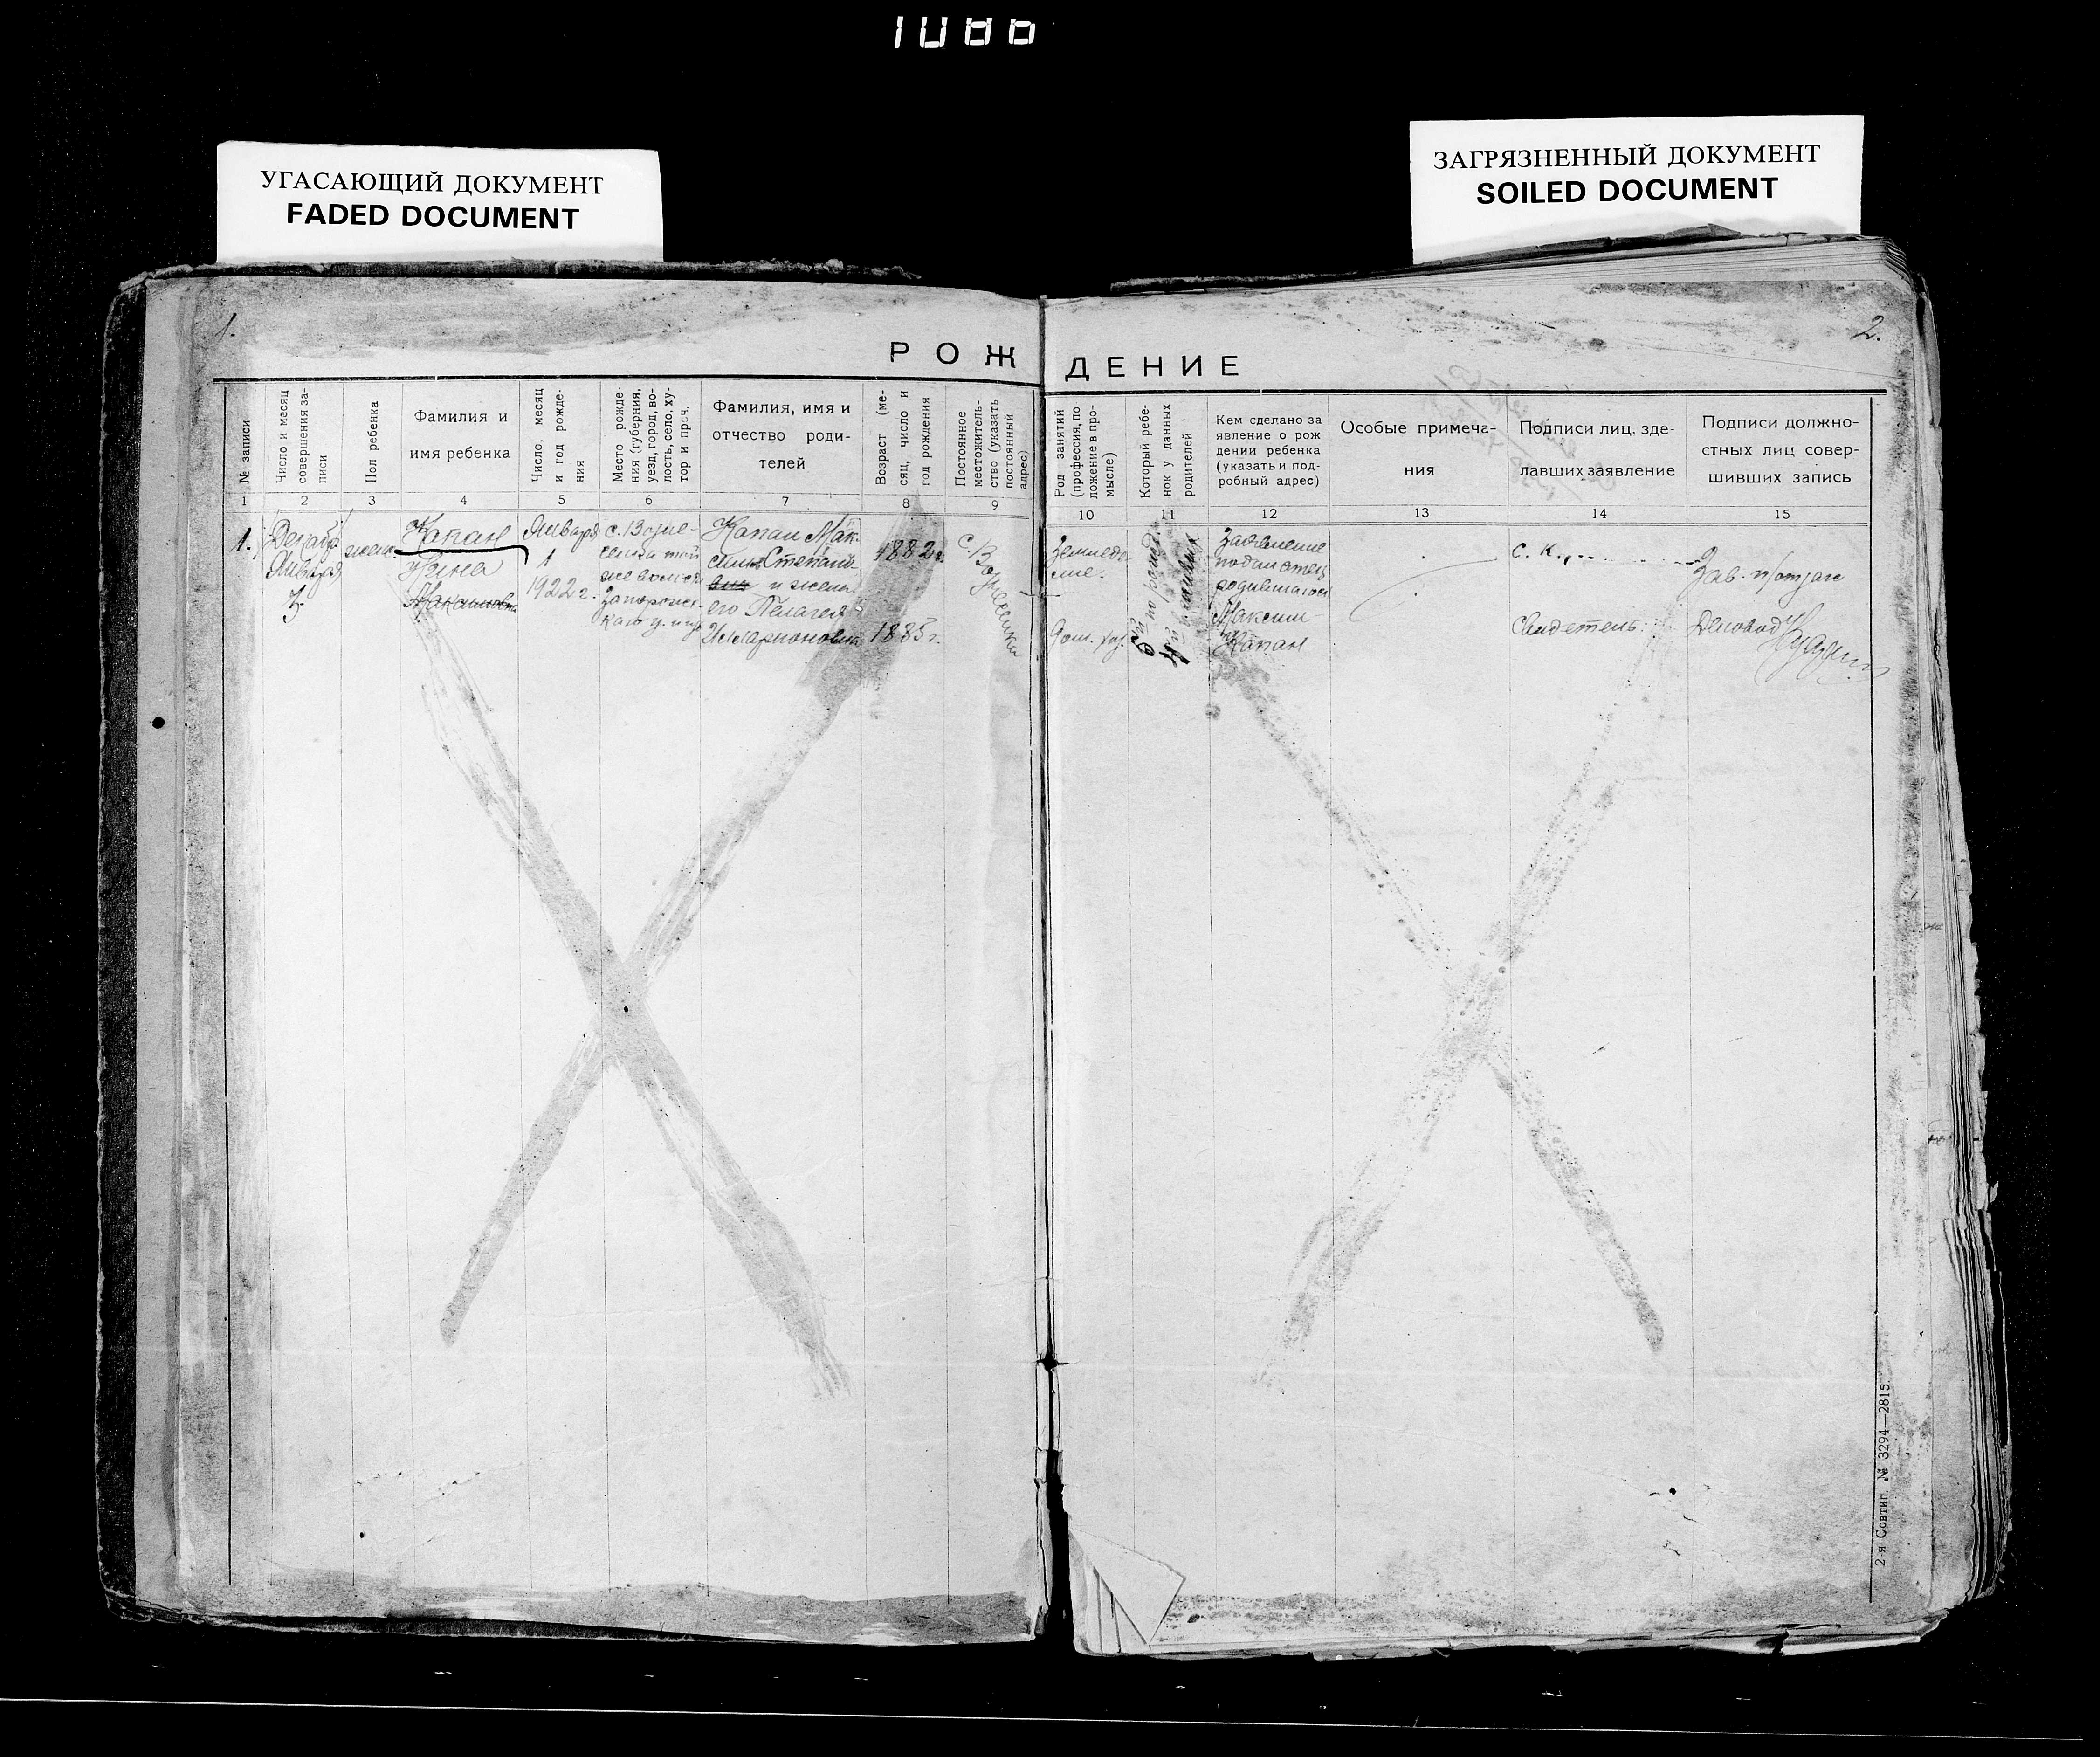 1086
УГАСАЮЩИЙ ДОКУМЕНТ
FADED DOCUMENT
ЗАГРЯЗНЕННЫЙ ДОКУМЕНТ
SOILED DOCUMENT
1.
2.
РОЖДЕНИЕ
№ записи
Число и месяц
совершения за-
писи
Пол ребенка
Фамилия и
имя ребенка
Число, месяц
и год рожде-
ния
Место рожде-
ния (губерния,
уезд, город, во-
лость, село, ху-
тор и проч.
Фамилия, имя и
отчество роди-
телей
Возраст (ме-
сяц, число и
год рождения
Постоянное
местожитель-
ство (указать
постоянный
адрес)
Род занятий
(профессия, по
ложение в про-
мысле)
Который ребе-
нок у данных
родителей
Кем сделано за
явление о рож
дении ребенка
(указать и под-
робный адрес)
Особые примеча-
ния
Подписи лиц, зде-
лавших заявление
Подписи должно-
стных лиц совер-
шивших запись
1 2 3 4 5 6 7 8 9 10 11 12 13 14 15
1.
Января
3
женс.
Капан
Января
1
1922 г.
Капан Мак-
сим Степано-
и жена
его Пелагея
Илларионовна
1882 г.
1885 г.
Земледе
лие.
Заявление
подал отец
родившагося
Максим
Капан
с. К.
Свидетель:
Деловод
2-я Совтип. № 3294—2815.